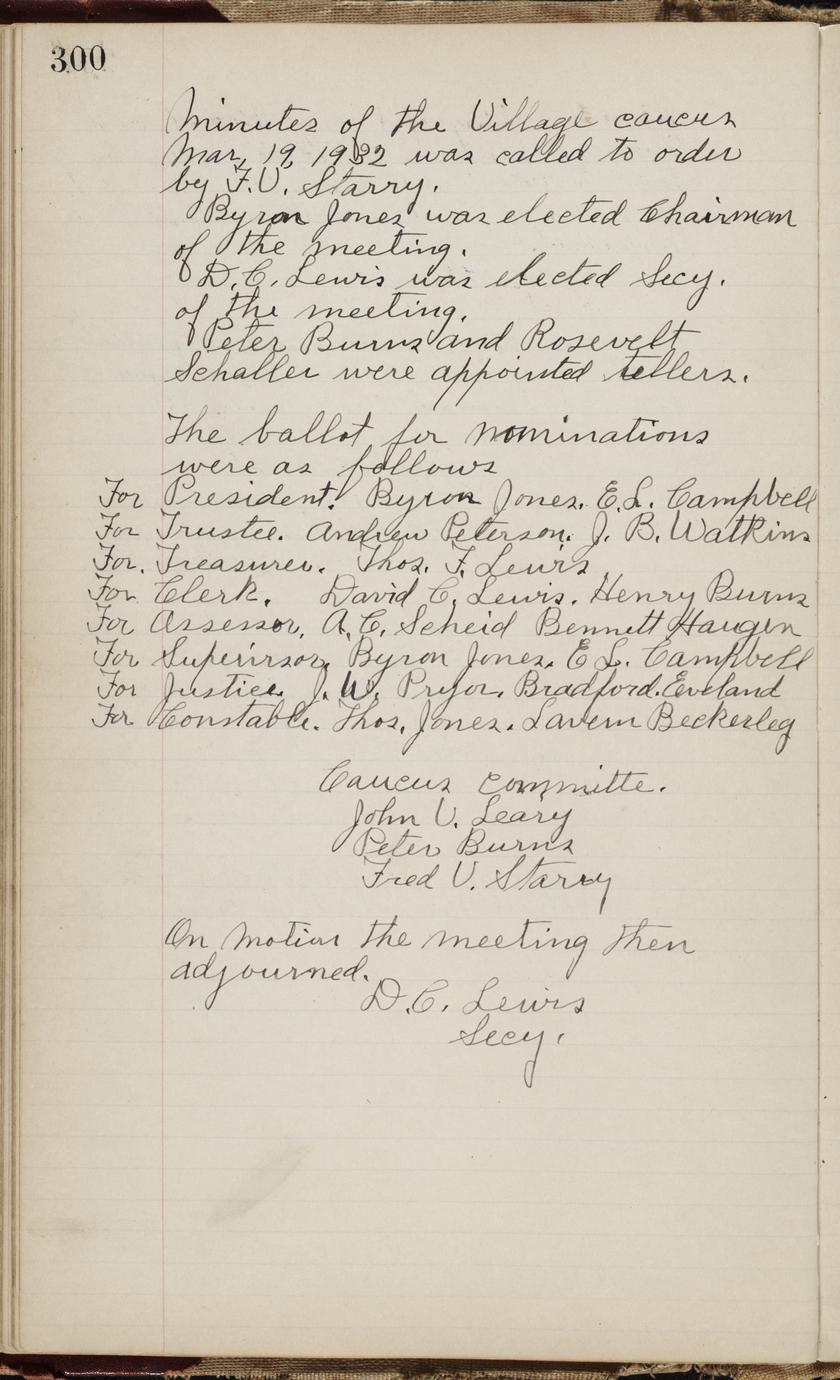 300
Minutes of the Village caucus
Mar, 19, 1932 was called to order
by F.V. Starry.
Byron Jones was elected Chairman
of the meeting.
D.C. Lewis was elected Secy.
of the meeting.
Peter Burns and Rosevelt
Schaller were appointed tellers.
The ballot for nominations
were as follows
For President. Byron Jones. E.L. Campbell
For Trustee. Andrew Peterson. J. B. Watkins
For. Treasurer. Thos. F. Lewis
For Clerk. David C. Lewis. Henry Burns
For Assessor, A.C. Scheid Bennett Haugen
For Supervisor, Byron Jones. E L. Campbell
For Justice. J. W. Pryor. Bradford. Eveland
For Constable. Thos. Jones. Lavern Beckerleg
Caucus committe.
John V. Leary
Peter Burns
Fred V. Starry
On motion the meeting then
adjourned.
D.C. Lewis
Secy.